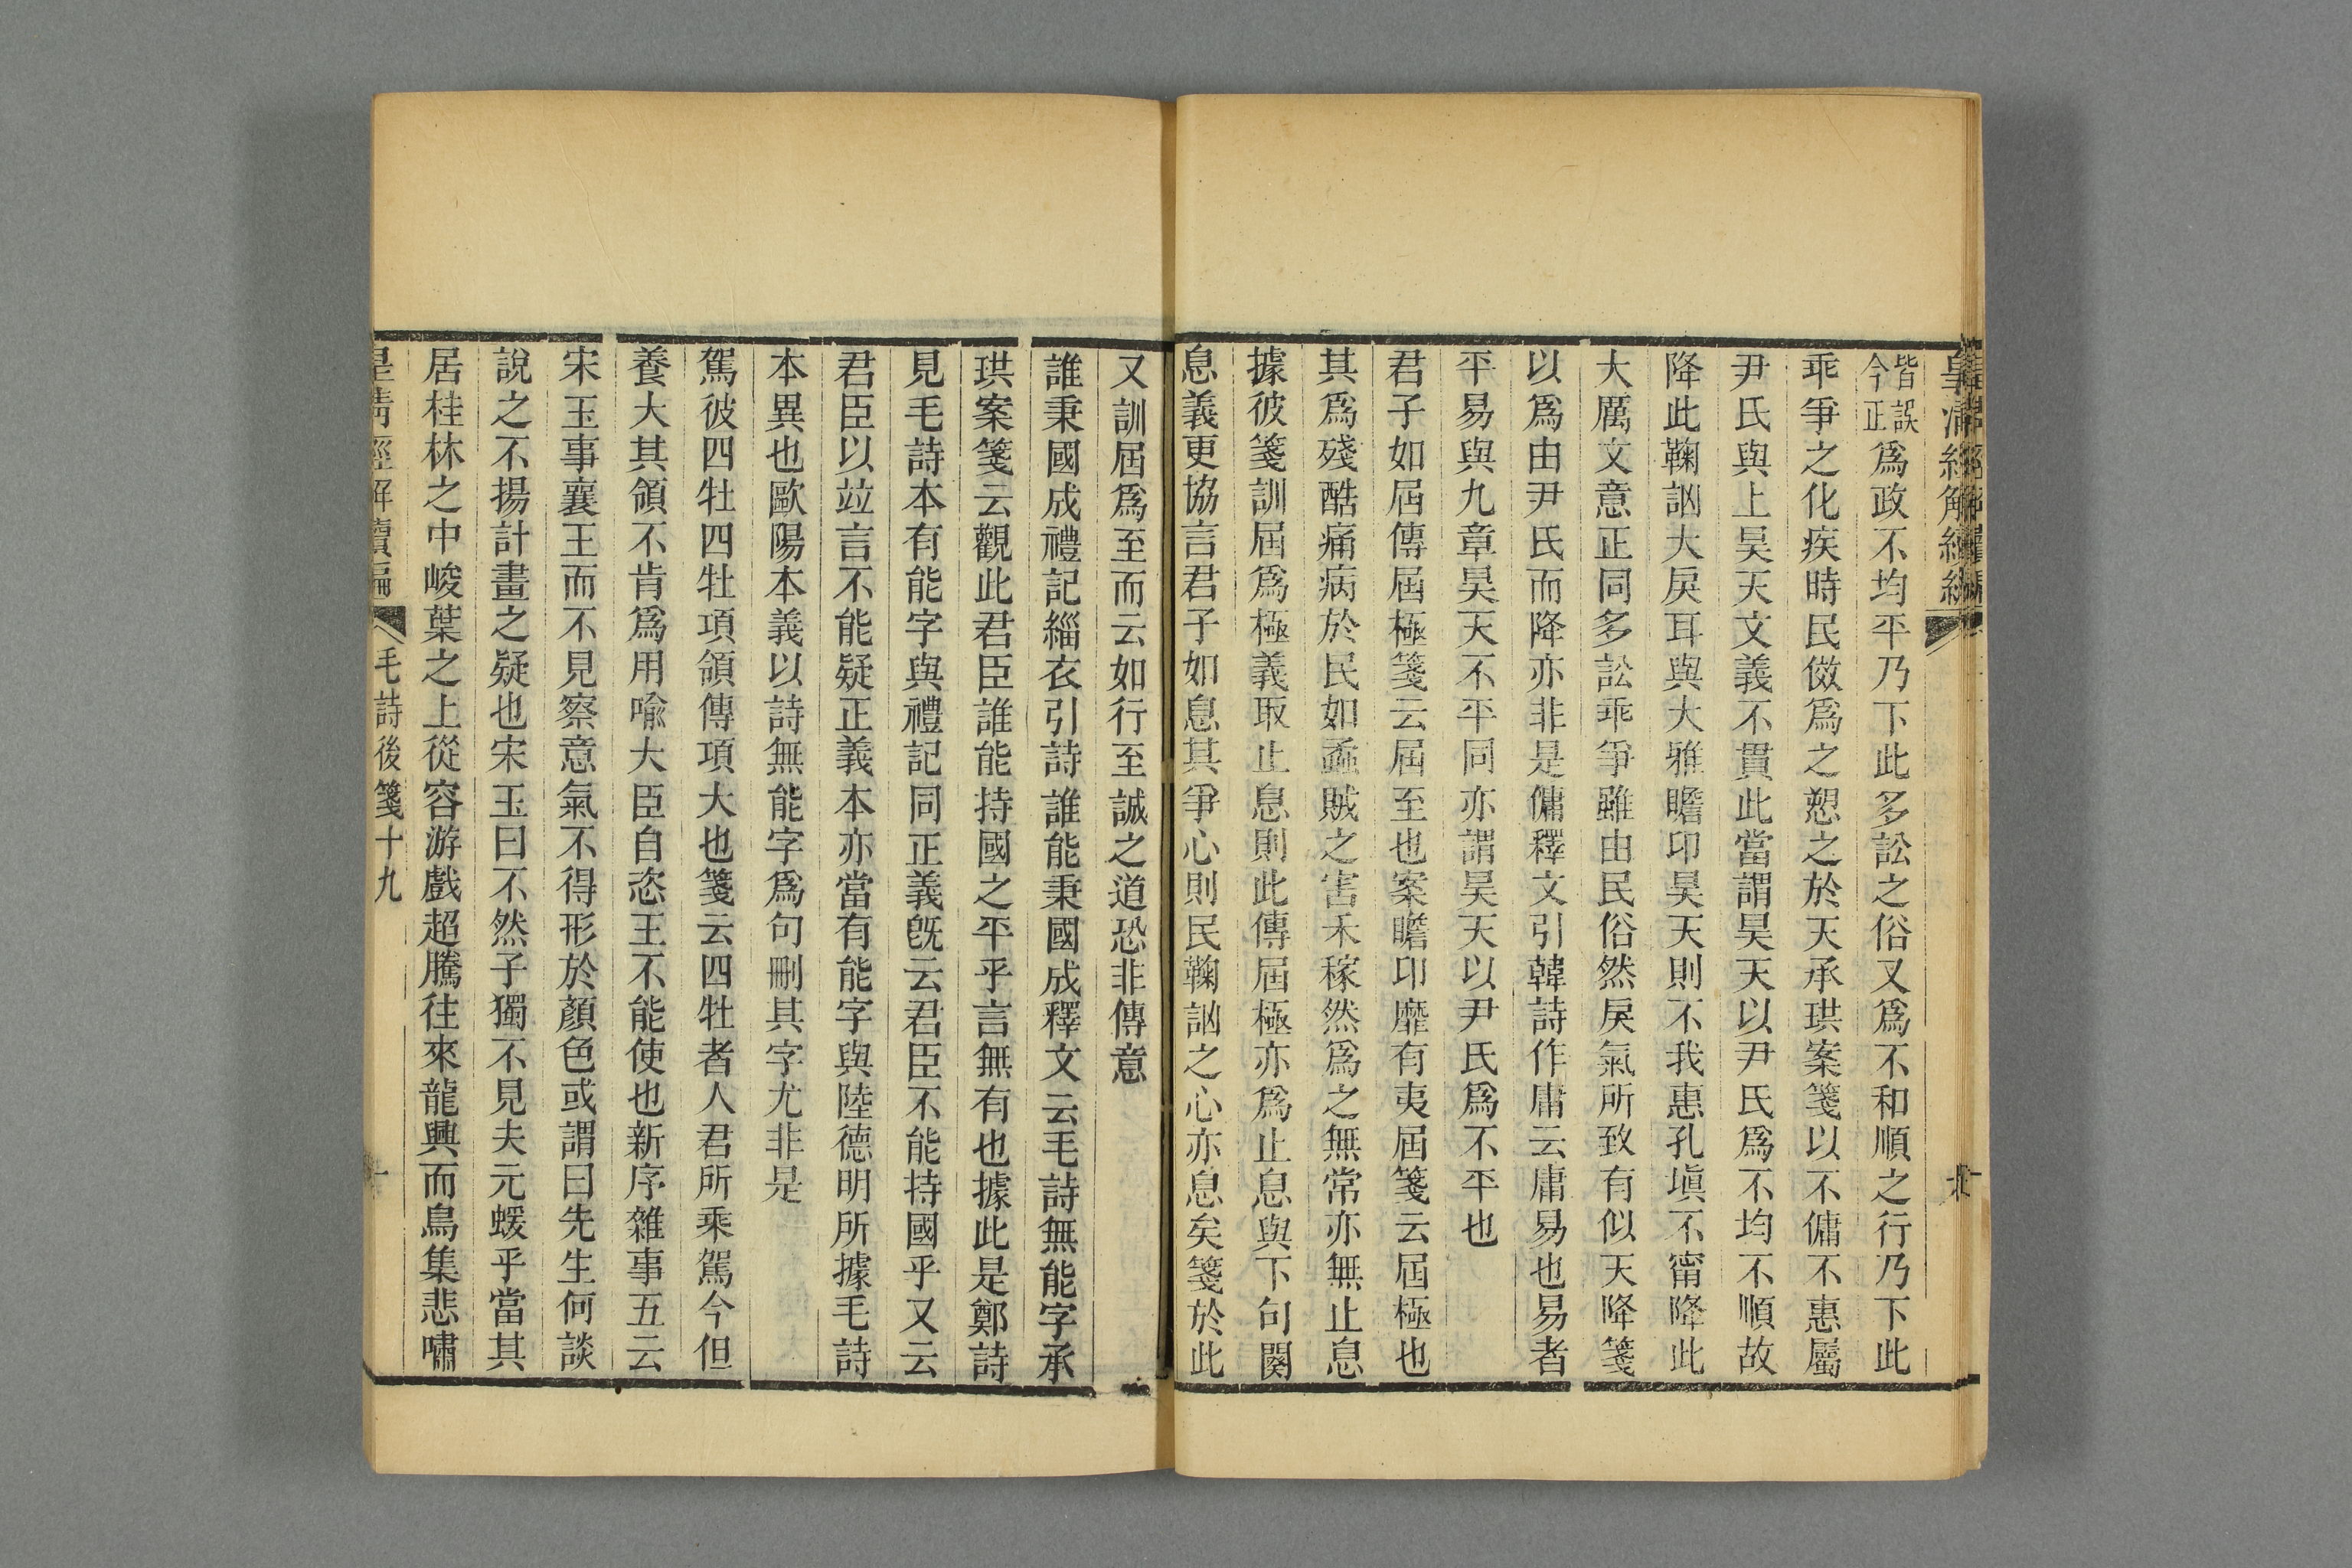 皇清經解續編
皆誤今正爲政不均平乃下此多訟之俗又爲不和順之行乃下此
乖爭之化疾時民傚爲之愬之於天承珙案箋以不傭不惠屬
尹氏與上昊天文義不貫此當謂昊天以尹氏爲不均不順故
降此鞠訩大戾耳與大雅瞻卬昊天則不我惠孔塡不甯降此
大厲文意正同多訟乖爭雖由民俗然戾氣所致有似天降箋
以爲由尹氏而降亦非是傭釋文引韓詩作庸云庸易也易者
平易與九章昊天不平同亦謂昊天以尹氏爲不平也
君子如屆傳屆極箋云屆至也案瞻卬靡有夷屆箋云屆極也
其爲殘酷痛病於民如蟊賊之害禾稼然爲之無常亦無止息
據彼箋訓屆爲極義取止息則此傳屆極亦爲止息與下句闋
息義更協言君子如息其爭心則民鞠訩之心亦息矣箋於此
又訓屆爲至而云如行至誠之道恐非傳意
誰秉國成禮記緇衣引詩誰能秉國成釋文云毛詩無能字承
珙案箋云觀此君臣誰能持國之平乎言無有也據此是鄭詩
見毛詩本有能字與禮記同正義旣云君臣不能持國乎又云
君臣以竝言不能疑正義本亦當有能字與陸德明所據毛詩
本異也歐陽本義以詩無能字爲句刪其字尤非是
駕彼四牡四牡項領傳項大也箋云四牡者人君所乘駕今但
養大其領不肯爲用喻大臣自恣王不能使也新序雜事五云
宋玉事襄王而不見察意氣不得形於顏色或謂曰先生何談
說之不揚計畫之疑也宋玉曰不然子獨不見夫元蝯乎當其
居桂林之中峻葉之上從容游戲超騰往來龍興而鳥集悲嘯
皇清經解續編 毛詩後箋十九